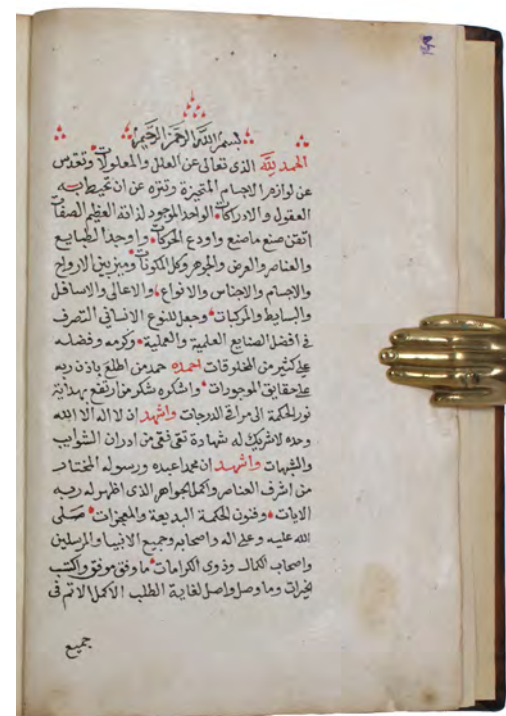 بسم الله الرحمن الرحيم
الحمد لله الذى تعالى عن العلل والمعلولات وتقدس
عن لوازم الاجسام المتحيزة وتنزه عن ان تحيط به
العقول والادراكات الواحد الموجود لذاته العظيم الصفات
اتقن صنع ماصنع واودع الحركات واوجد الطبايع
والعناصر والعرض والجوهر وكل المكونات وميز بين الارواح
والاجسام والاجناس والانواع والاعالى والاسافل
والبسايط والمركبات وجعل للنوع الانسانى التصرف
فى افضل الصنايع العلمية والعملية وكرمه وفضله
على كثير من المخلوقات احمده حمد من اطلع باذن ربه
على حقايق الموجودات واشكره شكر من ارتفع بهداية
نور الحكمة الى مراقى الدرجات واشهد ان لا اله الا الله
وحده لاشريك له شهادة تقى نقى من ادران الشوايب
والشبهات واشهد ان محمدا عبده ورسوله المختار
من اشرف العناصر واكمل الجواهر الذى اظهر له ربه
الايات وفنون الحكمة البديعة والمعجزات صلى
الله عليه وعلى اله واصحابه وجميع الانبيا والمرسلين
واصحاب الكمال وذوى الكرامات ما وفق موفق واكتسب
لخيرات وما وصل واصل لغاية الطلب الاكمل الاتم فى
جميع